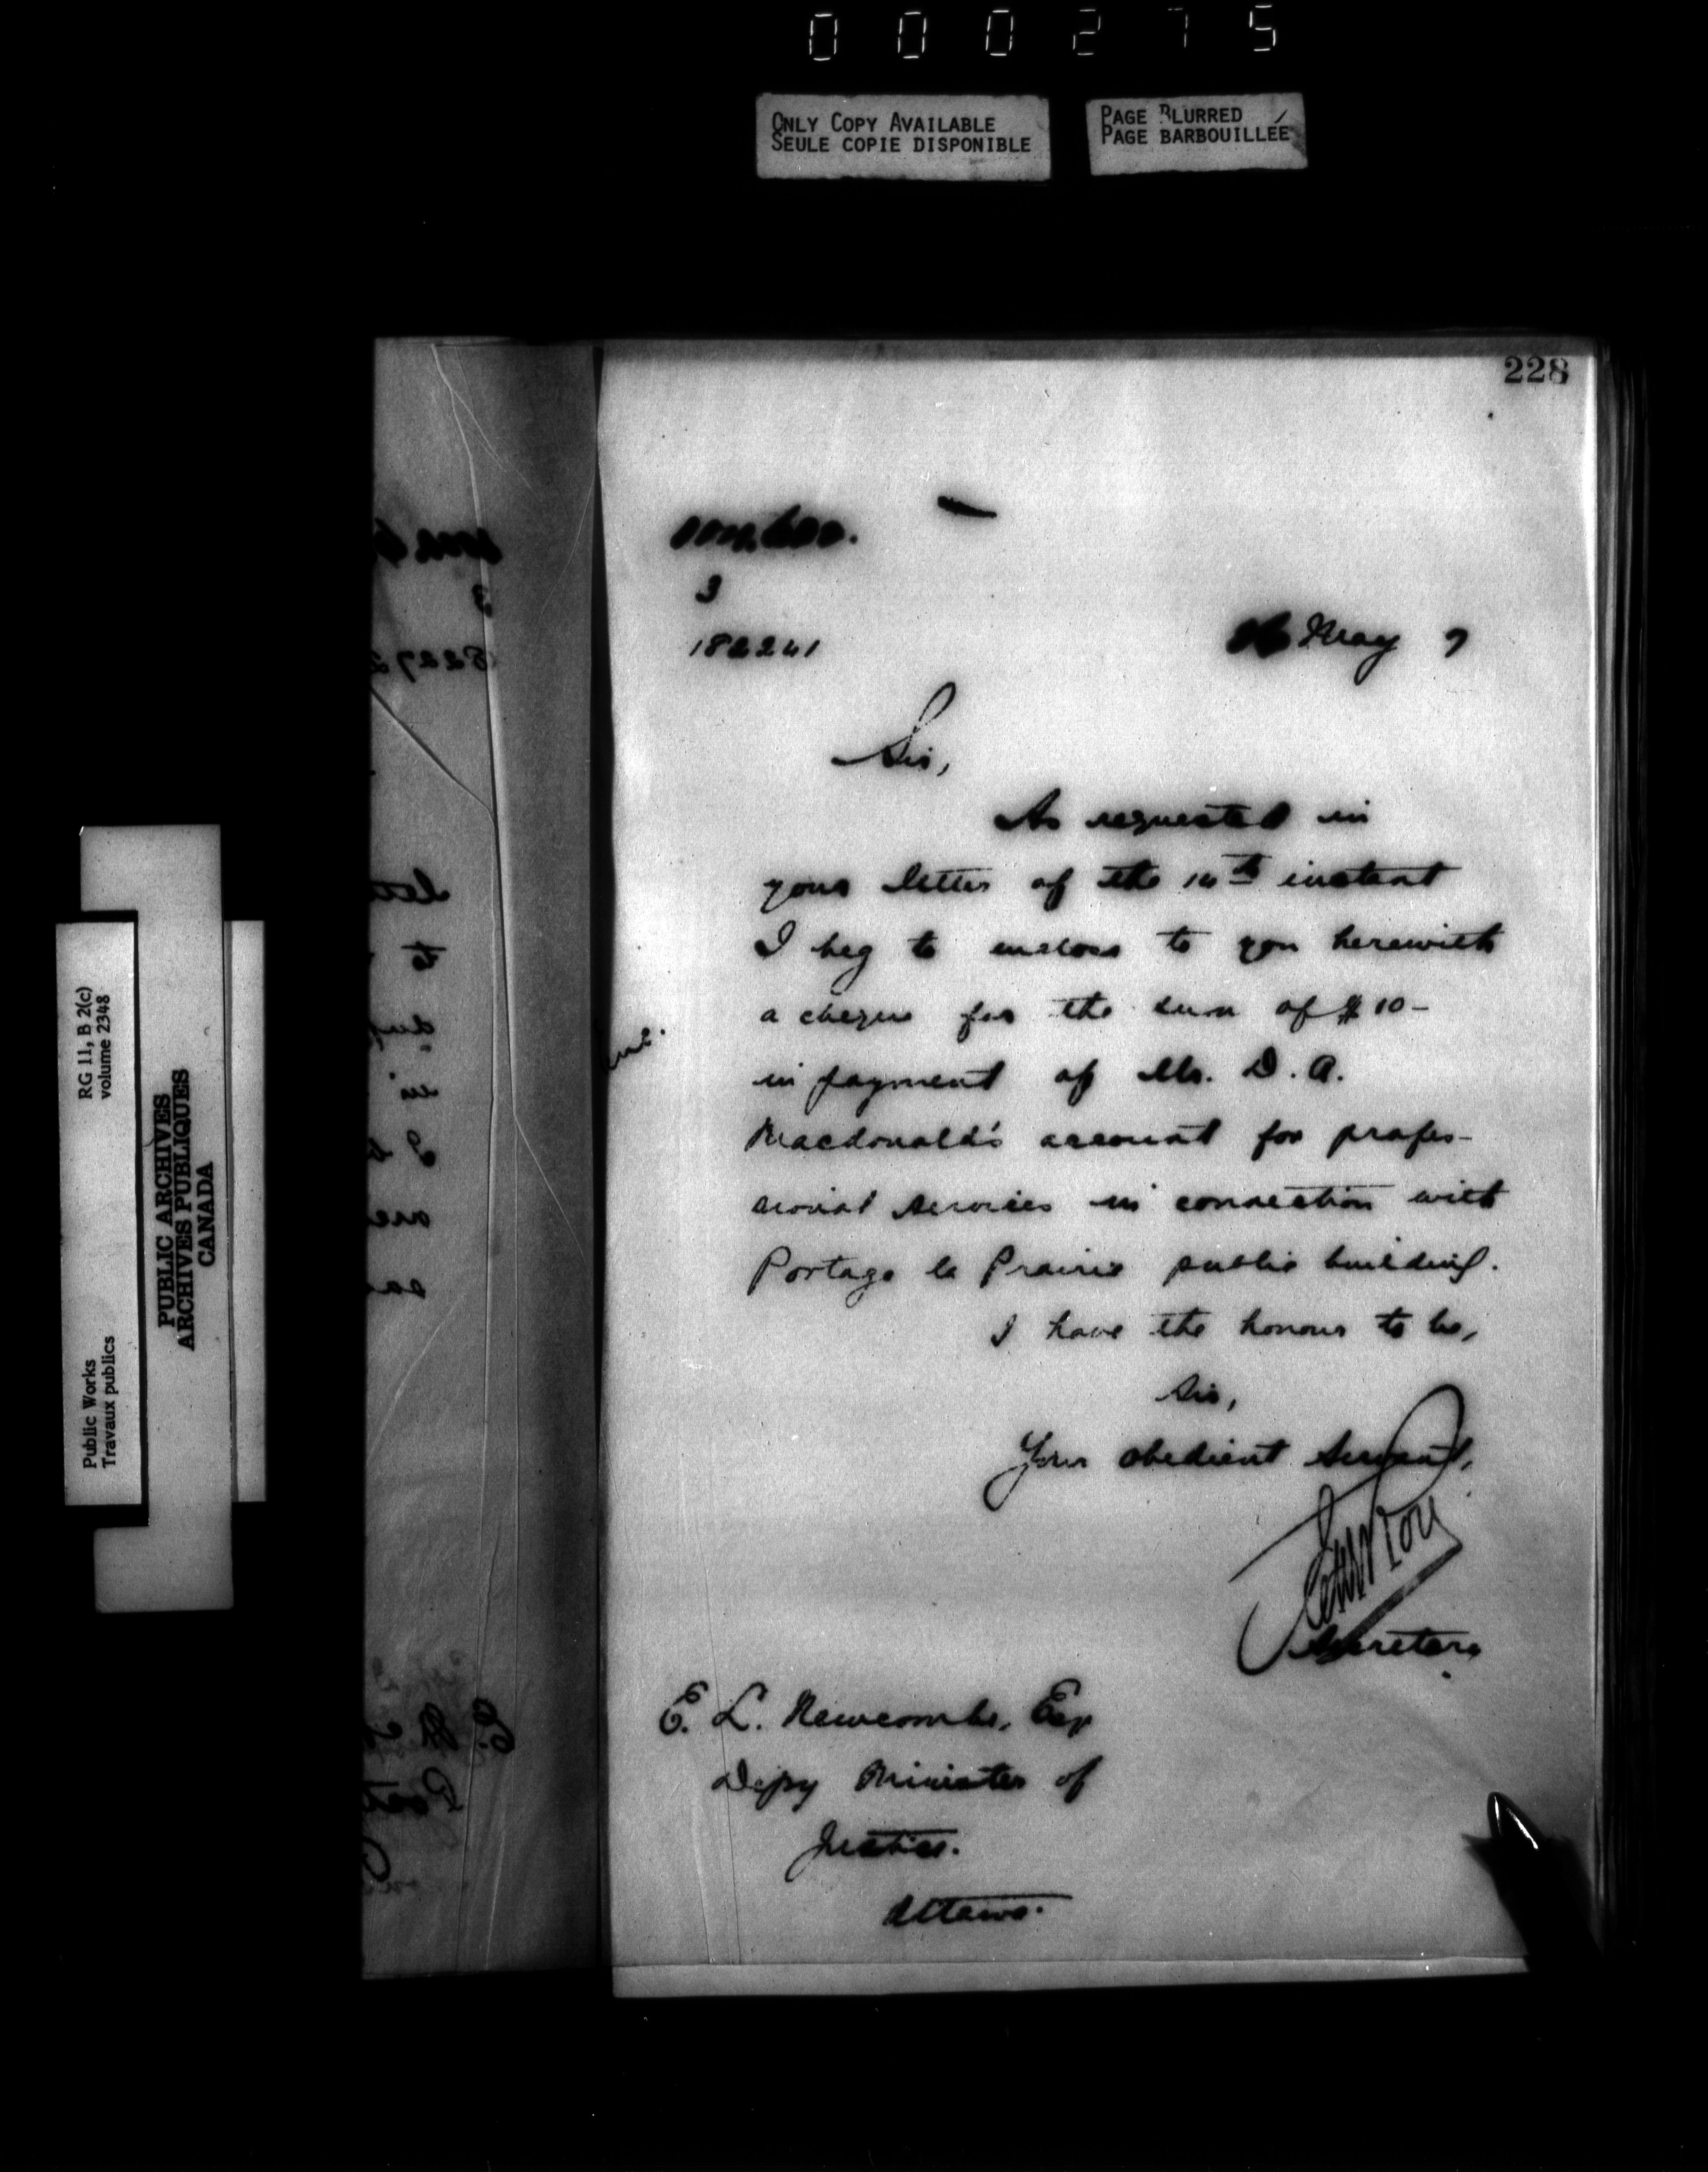 000275
ONLY COPY AVAILABLE
SEULE COPIE DISPONIBLE
PAGE BLURRED
PAGE BARBOUILLÉE
228
3
182241
May 7
Sir,
As requested in
your letter of the 14th instant
I beg to enclose to you herewith
a cheque for the sum of $10-
in payment of Mr. D. A.
Macdonald's account for profes-
sional services in connection with
Portage la Prairie public building.
I have the honour to be,
Sir,
Your obedient Servant,
Secretary
E. L. Newcombe, Esq
Depy Minister of
Justice.
Ottawa.
RG 11, B 2(c)
volume 2348
Public Works
Travaux publics
PUBLIC ARCHIVES
ARCHIVES PUBLIQUES
CANADA